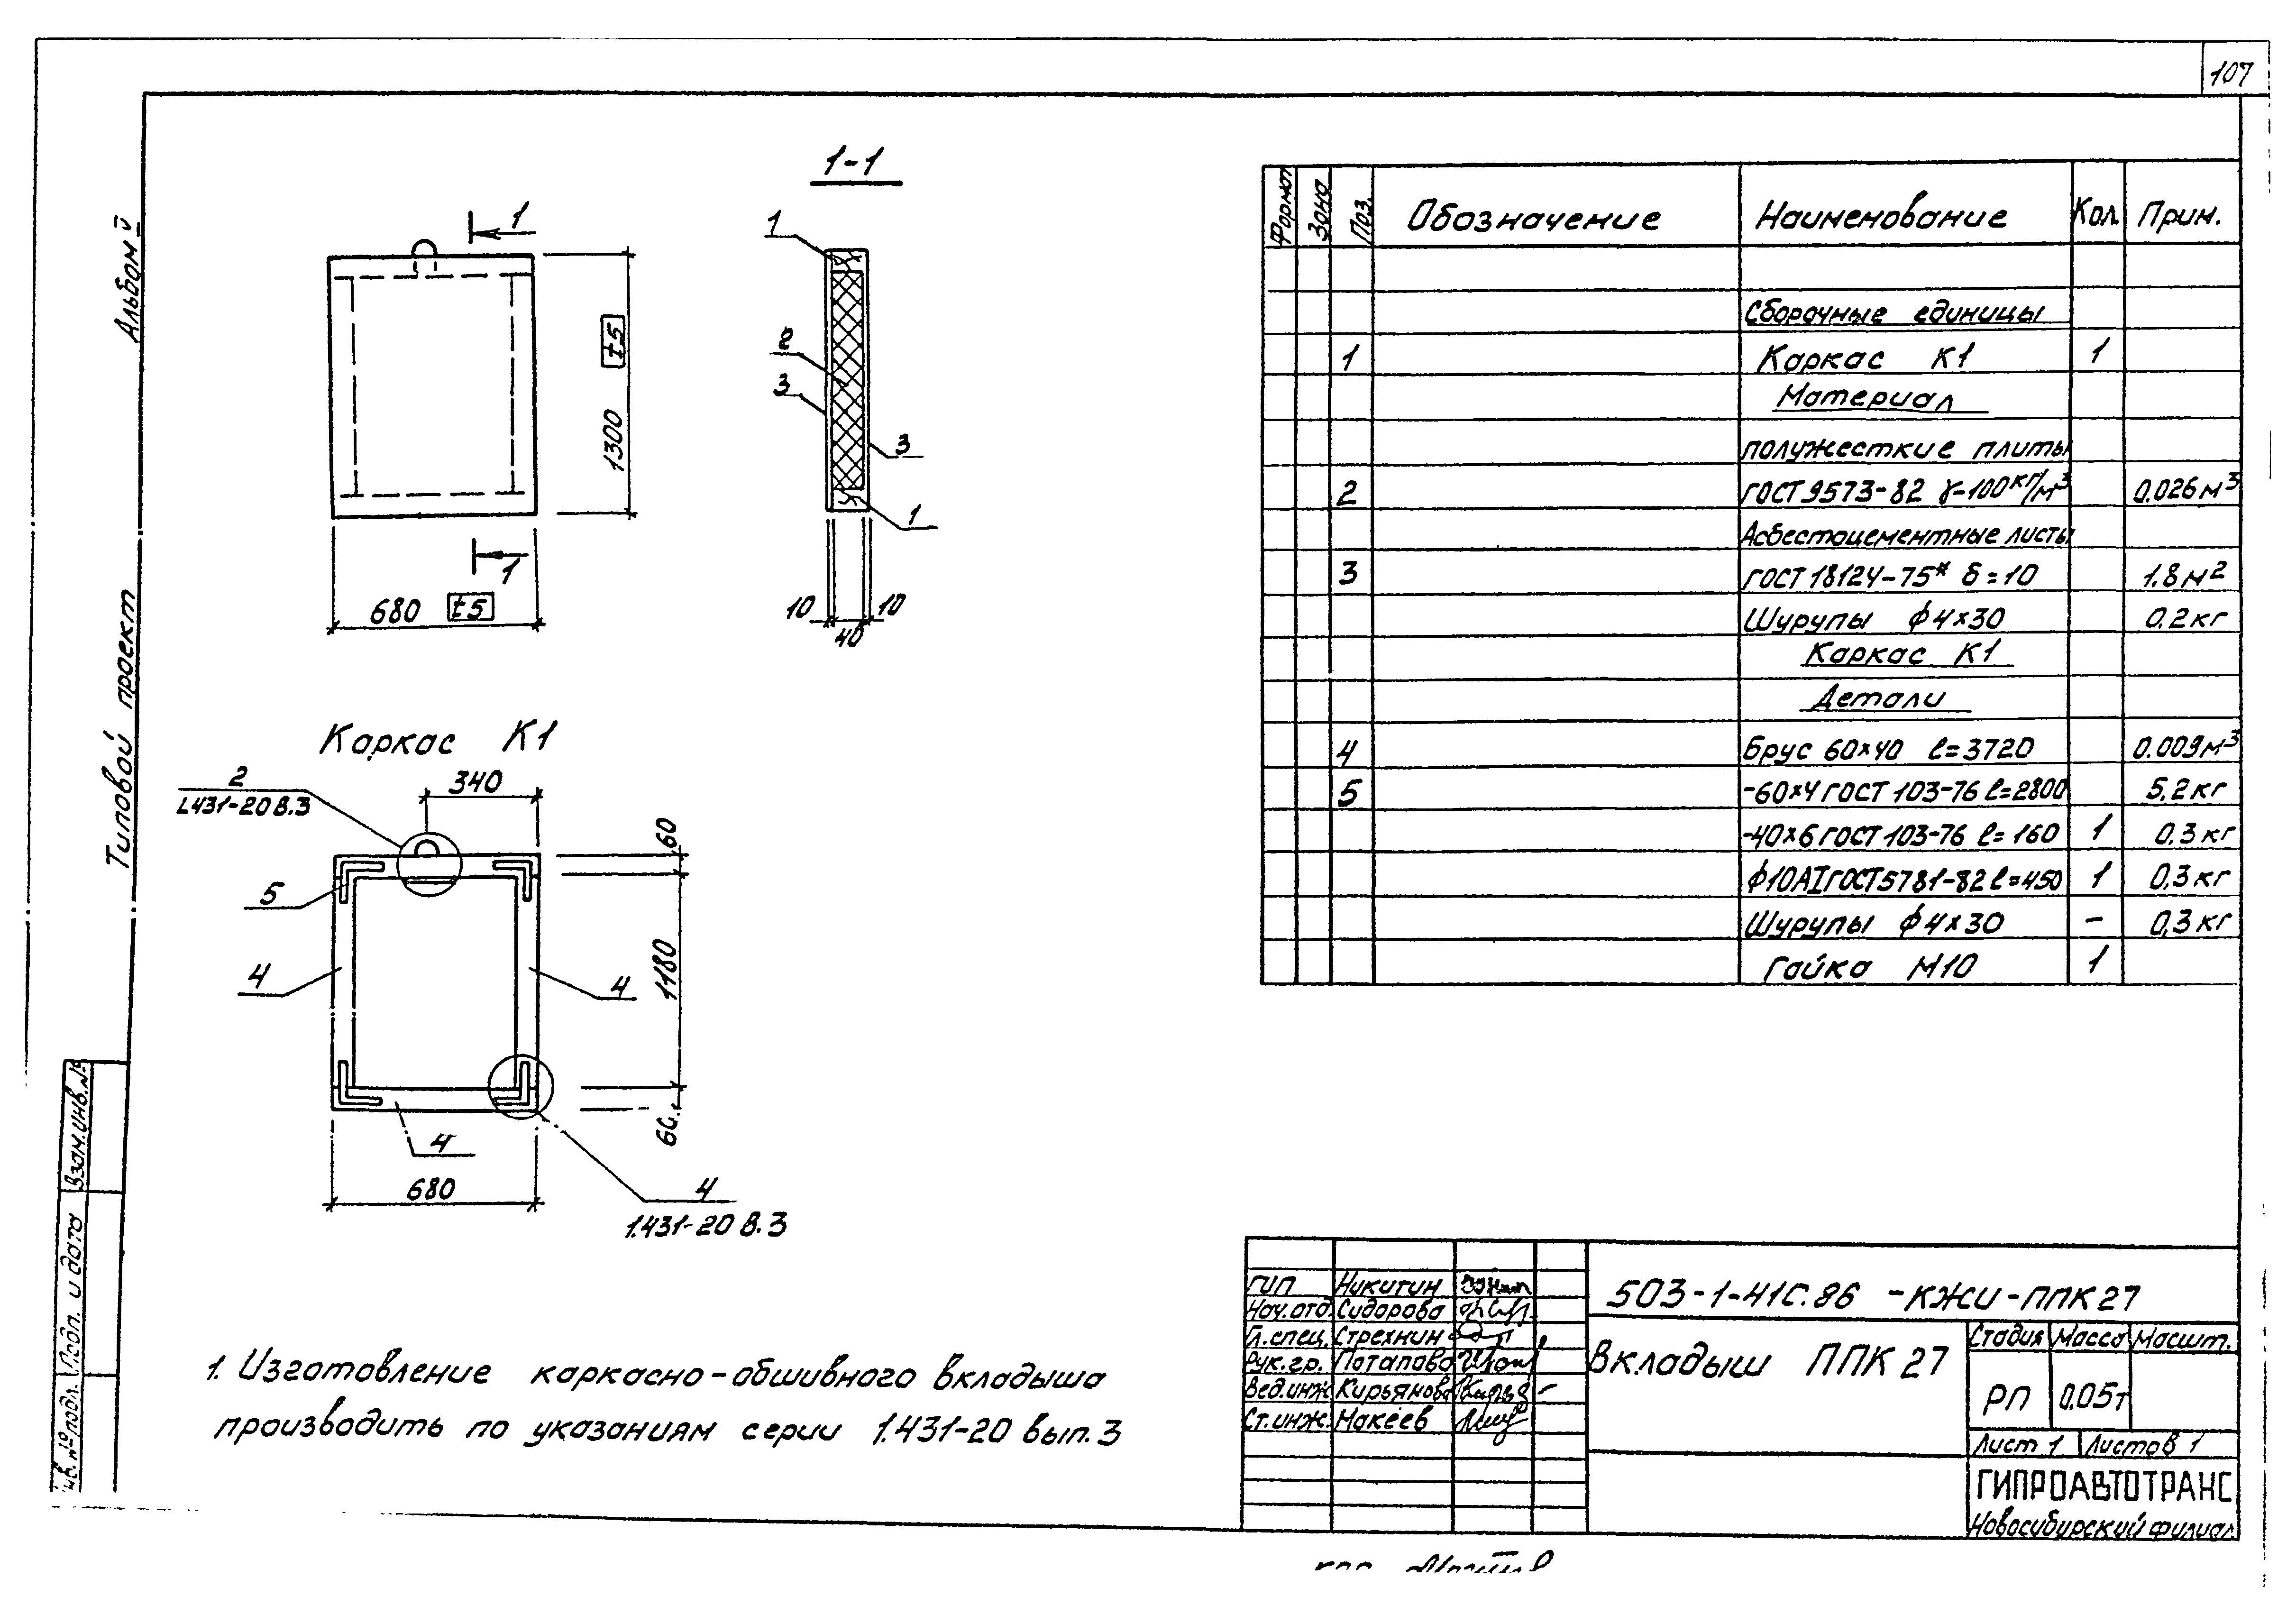 107
Альбом V
Типовой проект
1-1
1
1
1300 ±5
680 ±5
1
2
3
3
1
10
40
10
Каркас К1
2
1.431-20 В.3
340
60
5
4
4
1180
60
4
680
4
1.431-20 В.3
Формат Зона Поз. Обозначение Наименование Кол. Прим.
Сборочные единицы
1 Каркас К1 1
Материал
полужесткие плиты
2 ГОСТ 9573-82 γ-100кг/м³ 0.026м³
Асбестоцементные листы
3 ГОСТ 18124-75* δ=10 1.8м²
Шурупы ф4×30 0.2кг
Каркас К1
Детали
4 Брус 60×40 ℓ=3720 0.009м³
5 -60×4 ГОСТ 103-76 ℓ=2800 5.2кг
-40×6 ГОСТ 103-76 ℓ=160 1 0.3кг
ф10АI ГОСТ 5781-82 ℓ=450 1 0.3кг
Шурупы ф4×30 - 0.3кг
Гайка М10 1
1. Изготовление каркасно-обшивного вкладыша
производить по указаниям серии 1.431-20 вып.3
Взам.инв.№
Подп. и дата
Инв.№ подл.
ГИП Никитин
Нач.отд Сидорова
Гл.спец. Стрехнин
Рук.гр. Потапова
Вед.инж Кирьянова
Ст.инж. Макеев
503-1-41С.86 -КЖИ-ППК27
Вкладыш ППК 27
Стадия Масса Масшт.
РП 0.05т
Лист 1 Листов 1
ГИПРОАВТОТРАНС
Новосибирский филиал